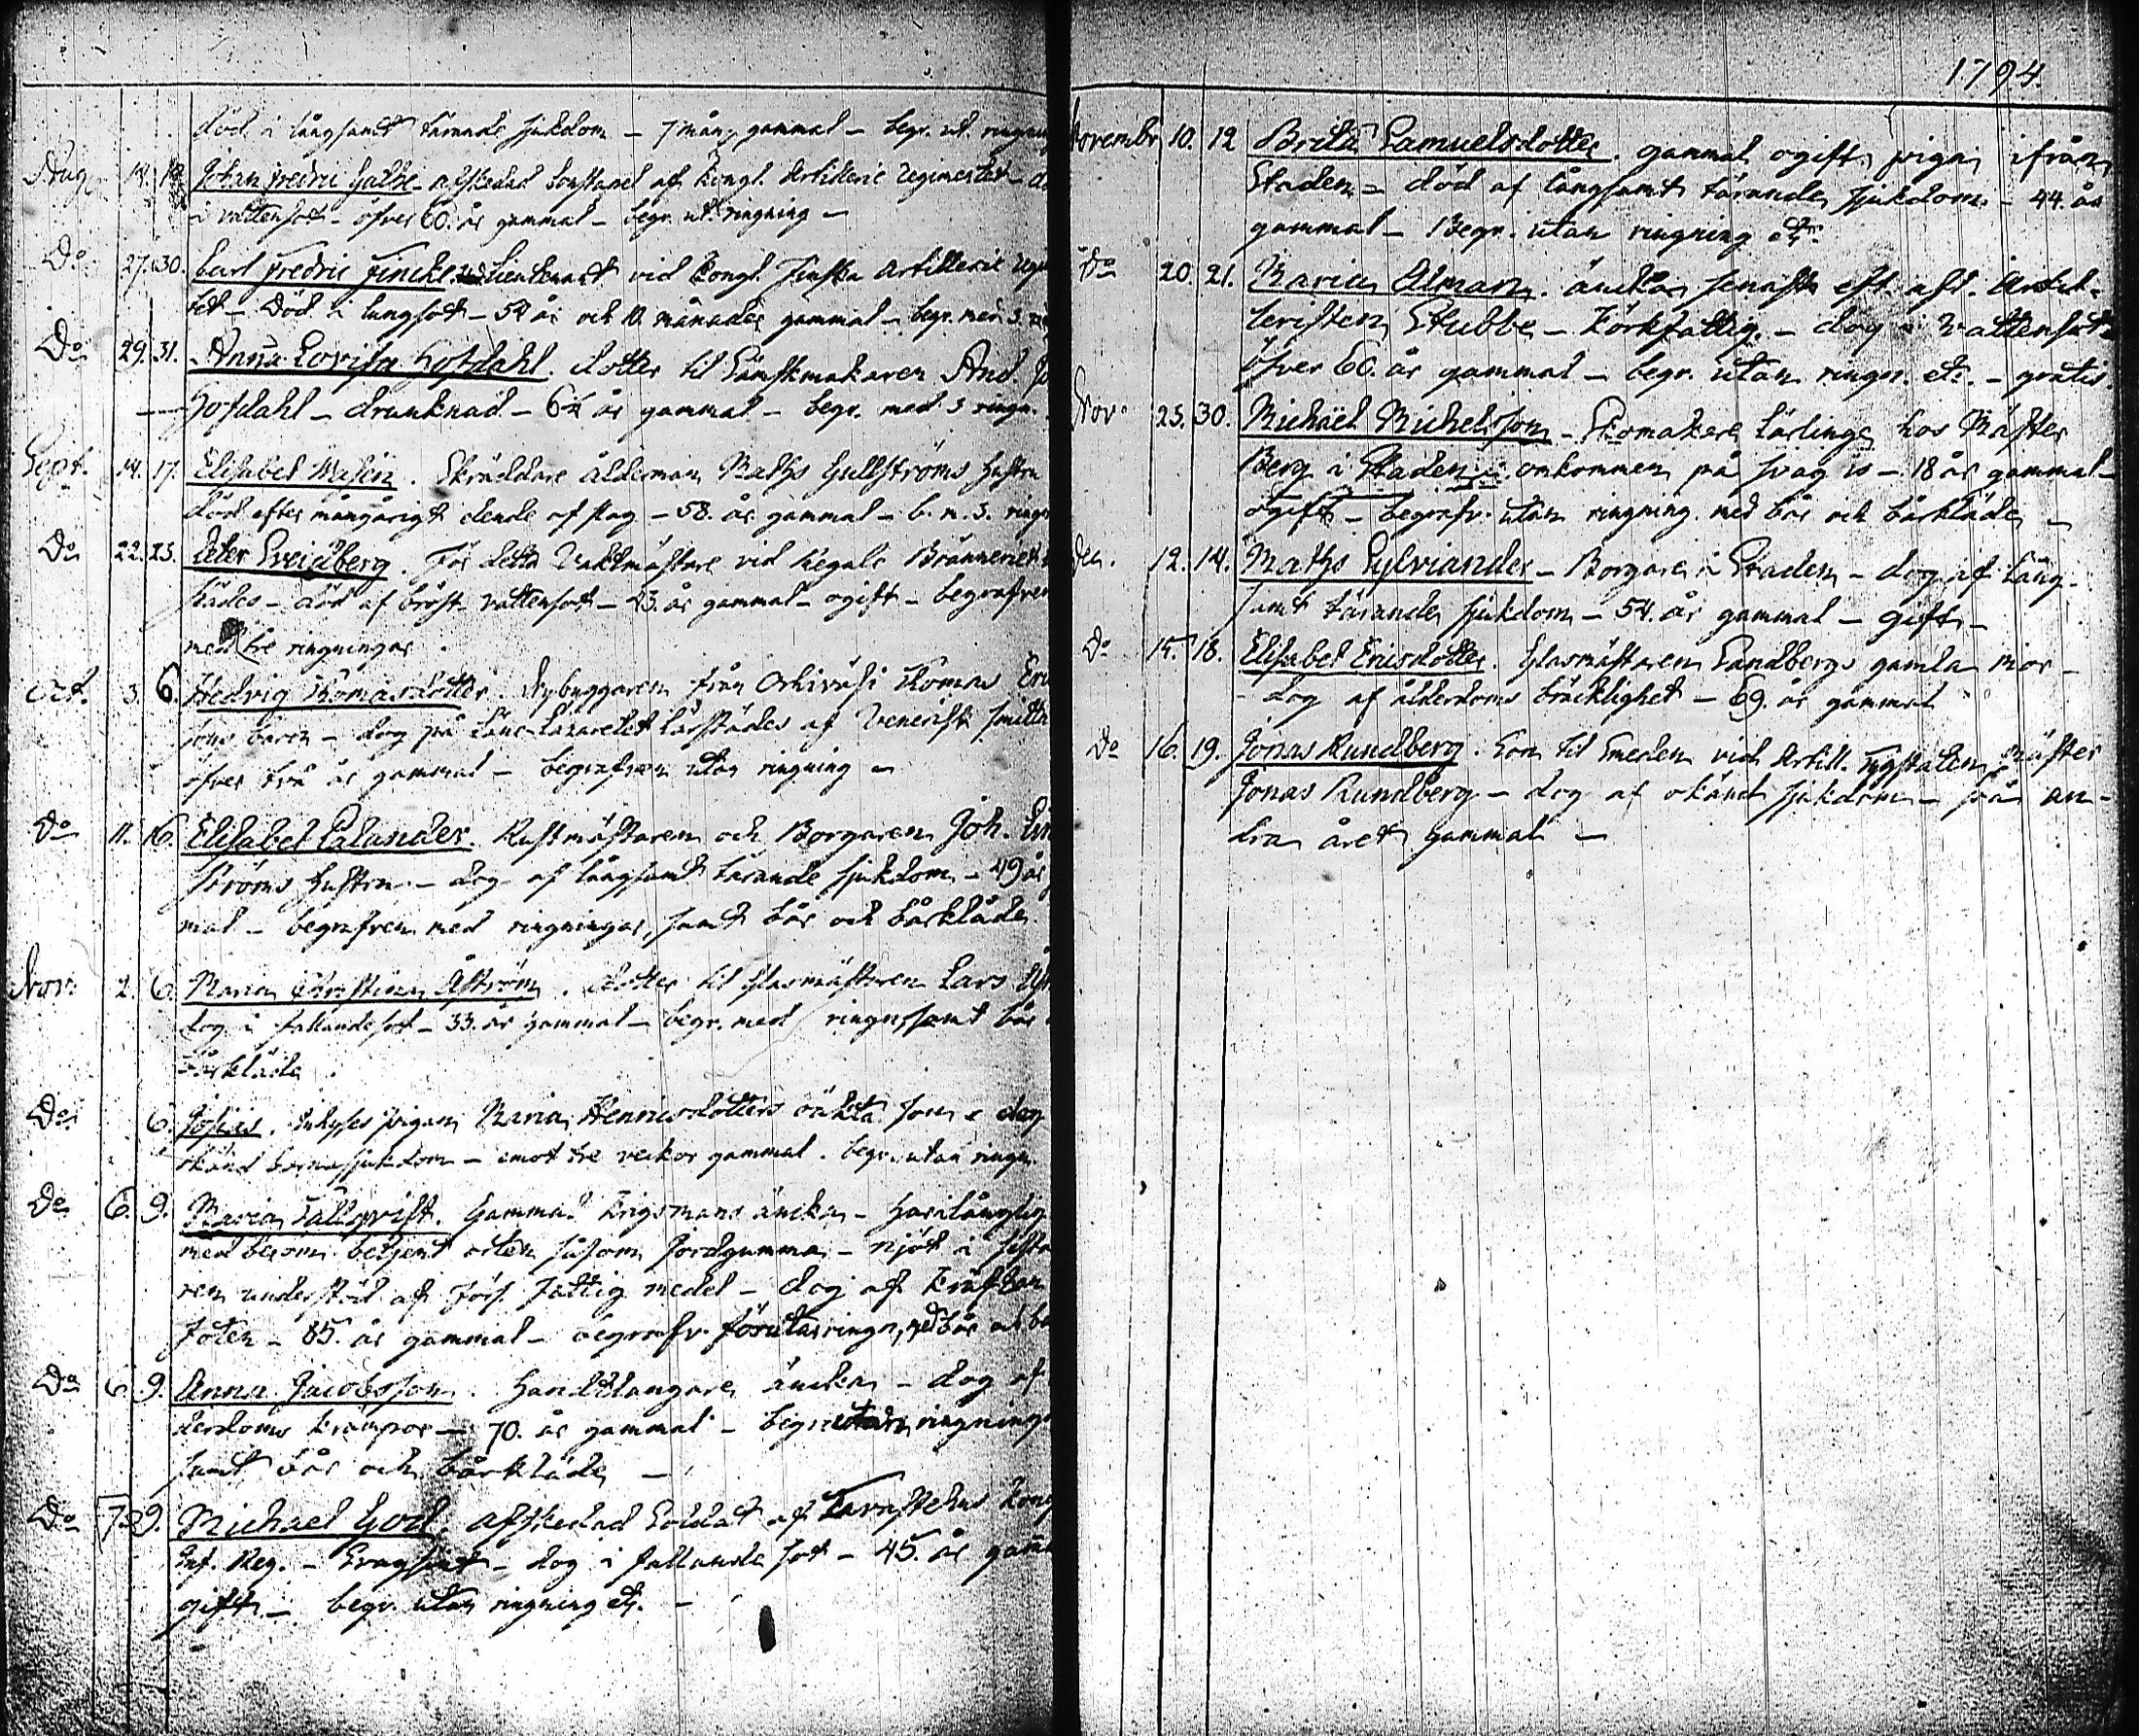 död i långsamt tärande sjukdom – 7 mån. gammal – begr. ut. ringning
Aug. 14. 19. Johan Fredric – afskedad Constapel af Kongl. Artillerie Regimentet –
i vattensot – öfver 60. år gammal – begr. ut. ringning –
Do 27. 30. Carl Fredric Fincke Lieutenant vid Kongl. Finska Artillerie
tet – Död i lungsot – 54 år och 10. månader gammal – begr. med 3.
Do 29. 31. Anna Lovisa Hofdahl. dotter til Sämskmakaren And.
Hofdahl – drunknad – 6½ år gammal – begr. med 3 ringn.
Sept. 14. 17. Elisabet Skräddare ålderman Mathz Gullströms hustru
död efter mångårigt elende af slag – 58. år gammal – b. m. 3. ringn
Do 22. 25. Peter Sveidberg. För detta Vaktmästare vid Regale Bränneriet
städes – död af bröst vattensot – 43. år gammal – ogift – begrafven
med tre ringningar.
Oct. 3. 6. Hedvig Thomasdotter. Nybyggaren från Thomas
sons barn – dog på Läns-Lazarettet härstädes af Venerisk smitta
öfver två år gammal – begrafven utan ringning –
Do 11. 16. Elisabet Rustmästaren och Borgaren Joh.
ströms hustru – dog af långsamt tärande sjukdom – 49 år
mal – begrafven med ringningar, samt bår och bårkläde.
Nov. 2. 6. Maria Christina Åström. dotter til Glasmästaren Lars
dog i fallandesot – 33. år gammal – begr. med ringn. samt bår
bårkläde.
Do 6. Josias. Inhyses pigan Maria Hennicsdotters oäkta son – dog
okänd barnasjukdom – emot tre veckor gammal. begr. utan ringn.
Do 6. 9. Maria Fallqvist. Gammal Krigsmans äncka – har
med beröm betjent orten såsom Jordgumma – njöt i sista
ren understöd af Förs. Fattig medel – dog af Kräftan
foten – 85. år gammal – begrafv. förutan ringn, med bår och
Do 6. 9. Anna Jacobsson. Handtlangare äncka – dog af
derdoms krämpor – 70. år gammal – begr. utan ringning
samt bår och bårkläde –
Do 7. 9. Michael God. afskedad Soldat af Tavastehus
Inf. Reg. – – dog i fallande sot – 45. år
gift – begr. utan ringning etc. –
1794.
Novembr 10. 12 Brita Samuelsdotter. gammal ogift piga ifrån
Staden – död af långsamt tärande sjukdom – 44. år
gammal – Begr. utan ringning etc.
Do 20. 21. Maria Alman. änckan senast eft. afsk. Artil-
leristen Stubbe – Körkfattig – dog i Vattensot –
öfver 60. år gammal – begr. utan ringn. etc. – gratis.
Nov. 25. 30. Michaël Michelsson – Skomakare lärlinge hos Mäster
Berg i Staden – omkommen på svag is – 18 år gammal –
ogift – begrafv. utan ringning med bår och bårkläde –
Dec. 12. 14. Mathz Sylviander – Borgare i Staden – dog af lång-
samt tärande sjukdom – 54. år gammal – gift –
Do 15. 18. Elisabet Ericsdotter. Glasmästaren Sandbergs gamla mor –
– dog af ålderdoms bräcklighet – 69. år gammal
Do 16. 19. Jonas Rundberg. Son til Smeden vid Artill. Tygstaten Mäster
Jonas Rundberg – dog af okänd sjukdom – på an-
dra året gammal –